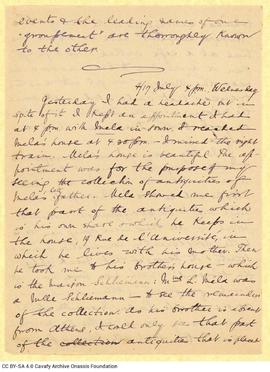 events & the leading names of one
"groupement" are thoroughly known
to the other.
4/17 July 4 pm. Wednesday
Yesterday I had a headache but in
spite of it I kept an appointment I had
at 4 pm with Mela in town. I reached
Mela's house at 4.20 pm - I missed the right
train. Mela's house is beautiful. The ap-
pointment was for the purpose of my
seeing the collection of antiquities of
Mela's father. Mela showed me first
that part of the antiquities which
is his own share which he keeps in
the house, 4 Rue de l'Université, in
which he lives with his mother. Then
he took me to his brother's house - which
is the maison Schliemann: Mme L. Mela was
a Mlle Schliemann - to see the remainder
of the collection. As his brother is absent
from Athens, I could only see that part
of the collection antiquities that is placed
CC BY-SA 4.0 Cavafy Archive Onassis Foundation